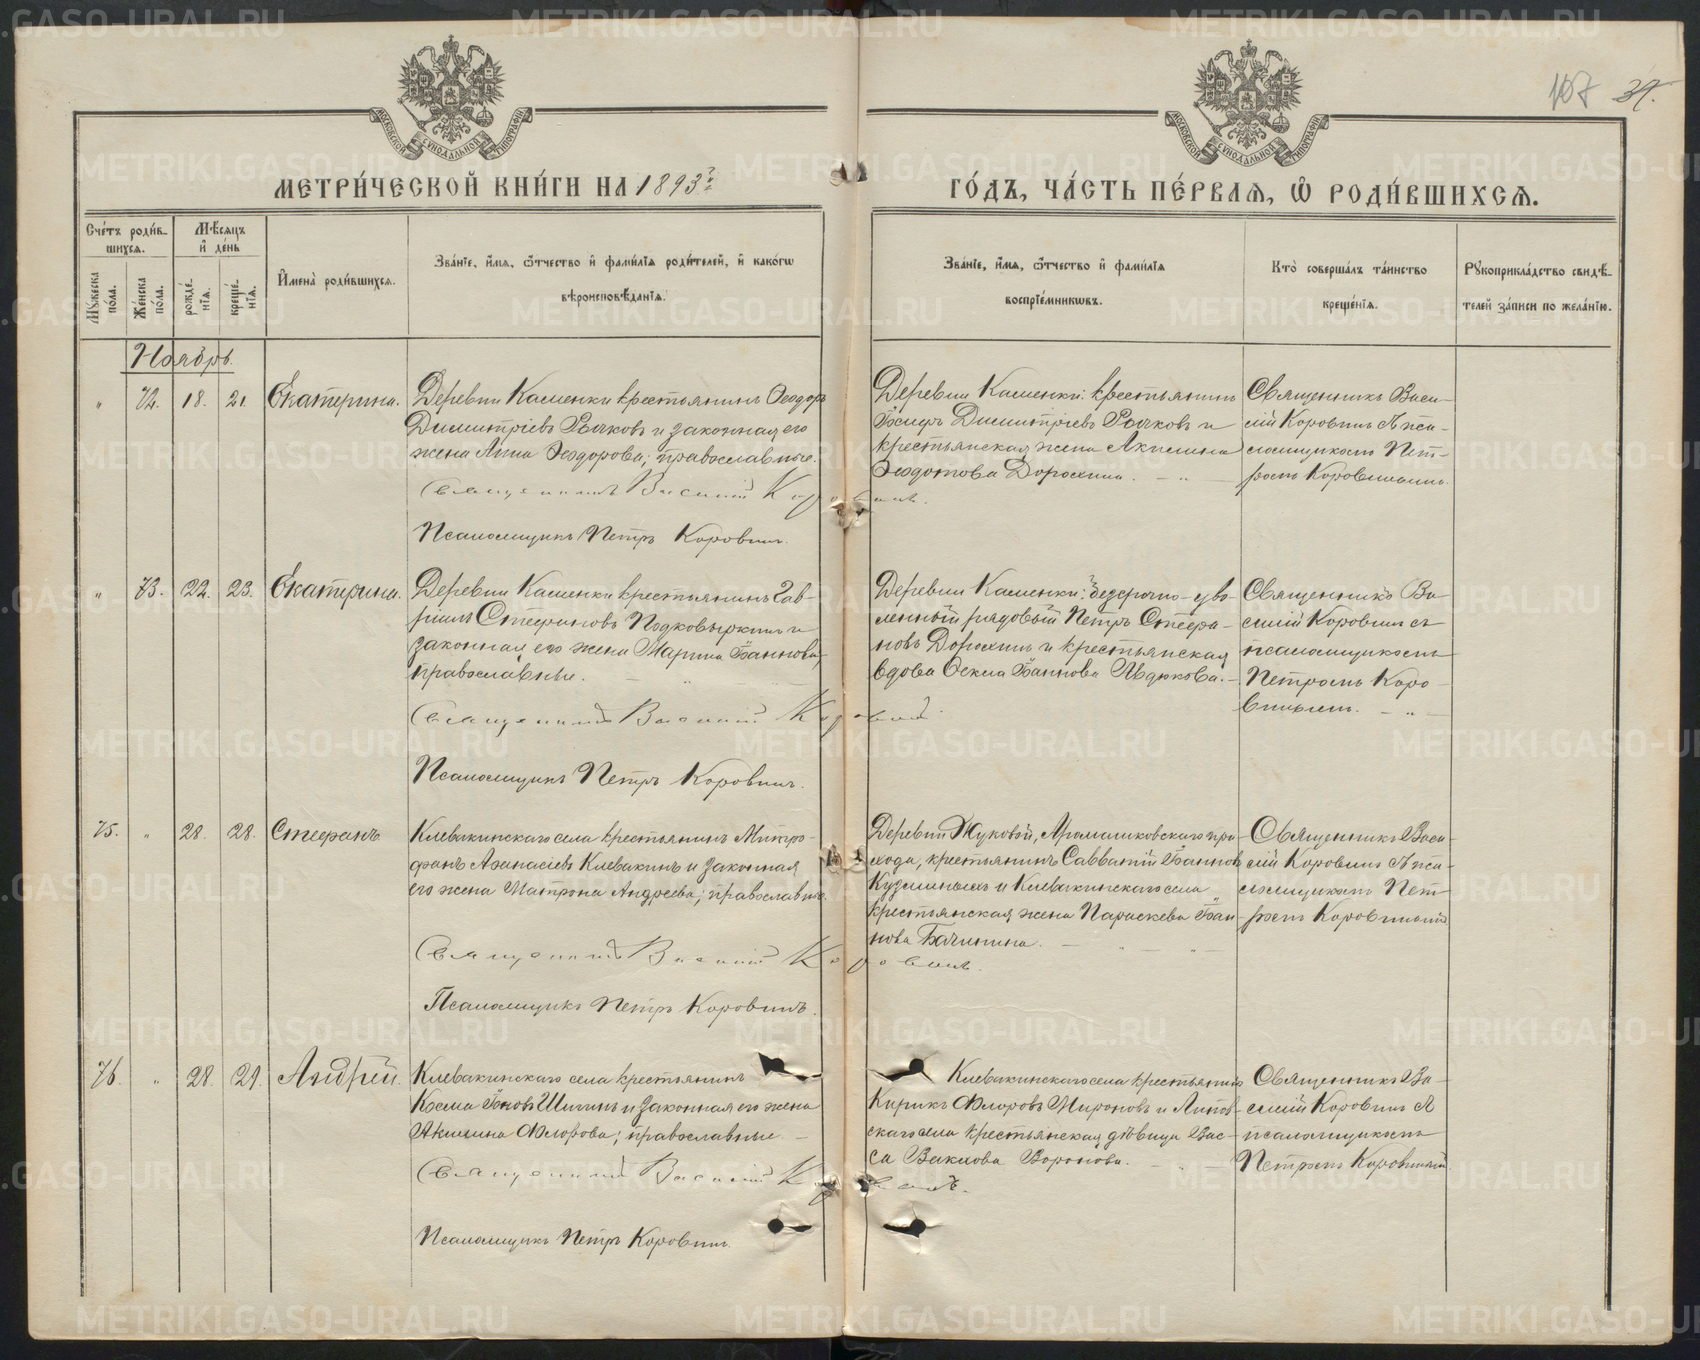 107 34.
МОСКОВСКОЙ СѴНОДАЛЬНОЙ ТИПОГРАФІИ
МОСКОВСКОЙ СѴНОДАЛЬНОЙ ТИПОГРАФІИ
МЕТРИ́ЧЕСКОЙ КНИ́ГИ НА 1893й
ГО́ДЪ, ЧА́СТЬ ПЕ́РВАЯ, Ѡ҆ РОДИ́ВШИХСЯ.
Сче́тъ роди́в-
шихся.
Мѣ́сяцъ
и҆ де́нь
Му́жеска по́ла.
Же́нска по́ла.
рожде́-нїѧ.
креще́-нїѧ.
И҆мена̀ роди́вшихся.
Зва́нїе, и҆́мя, ѻ҆́тчество и҆ фами́лїѧ роди́телей, и҆ како́гѡ
вѣроисповѣ́данїѧ.
Зва́нїе, и҆́мя, ѻ҆́тчество и҆ фами́лїѧ
воспрїе́мникѡвъ.
Кто̀ соверша́лъ та́инство
креще́нїѧ.
Рукоприкла́дство свидѣ́-
телей за́писи по жела́нїю.
Ноябрь.
" 72. 18. 21. Екатерина.
Деревни Каменки крестьянинъ Ѳеодоръ
Димитріевъ Рычковъ и законная его
жена Анна Ѳеодорова; православные.
Священникъ Василій Коровинъ.
Псаломщикъ Петръ Коровинъ.
Деревни Каменки: крестьянинъ
Димитріевъ Рычковъ и
крестьянская жена Акилина
Ѳедотова Дорохина. — " —
Священникъ Васи-
лій Коровинъ съ пса-
ломщикомъ Пет-
ромъ Коровинымъ.
" 73. 22. 23. Екатерина.
Деревни Каменки крестьянинъ Гав-
ріилъ Стефановъ Подковыркинъ и
законная его жена Марина Іоаннова;
православные.
Священникъ Василій Коровинъ.
Псаломщикъ Петръ Коровинъ.
Деревни Каменки: безсрочно-уво-
ленный рядовый Петръ Стефа-
новъ Дорохинъ и крестьянская
вдова Ѳекла Іоаннова Авдюкова. —
Священникъ Ва-
силій Коровинъ съ
псаломщикомъ
Петромъ Коро-
винымъ. — " —
75. " 28. 28. Стефанъ
Клевакинскаго села крестьянинъ Митро-
фанъ Аѳанасіевъ Клевакинъ и законная
его жена Матрона Андреева; православные.
Священникъ Василій Коровинъ.
Псаломщикъ Петръ Коровинъ.
Деревни Жуковой, Арамашковскаго при-
хода, крестьянинъ Савватій Іоанновъ
Кузьминыхъ и Клевакинскаго села
крестьянская жена Параскева Іоан-
нова Бачинина. — " — " —
Священникъ Васи-
лій Коровинъ съ пса-
ломщикомъ Пет-
ромъ Коровинымъ
76. " 28. 29. Андрей.
Клевакинскаго села крестьянинъ
Косма и законная его жена
Акилина Флорова; православные —
Священникъ Василій Коровинъ.
Псаломщикъ Петръ Коровинъ.
Клевакинскаго села крестьянинъ
Кирикъ Флоровъ Мироновъ и Липов-
скаго села крестьянская дѣвица Вас-
са Воронова. — " —
Священникъ Ва-
силій Коровинъ съ
псаломщикомъ
Петромъ Коровинымъ
METRIKI.GASO-URAL.RU